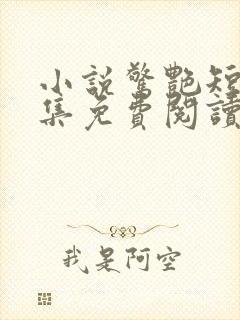 小説驚艷短
集免費閱讀
我是阿空